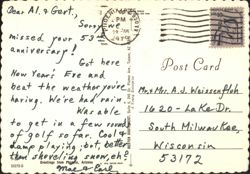 Dear Al, & Gert,
Sorry we
missed your 53rd
anniversary!
Got here
New Year's Eve and
beat the weather you're
having. We've had rain.
Was able
to get in a few rounds
of golf so far. Cool &
damp playing; but, better
than shoveling snow, eh?
Mae & Earl
PM
Post Card
Mr. & Mrs. A.J. Weissenfluh
1620 - Lake Dr.
South Milwaukee,
Wisconsin
53172